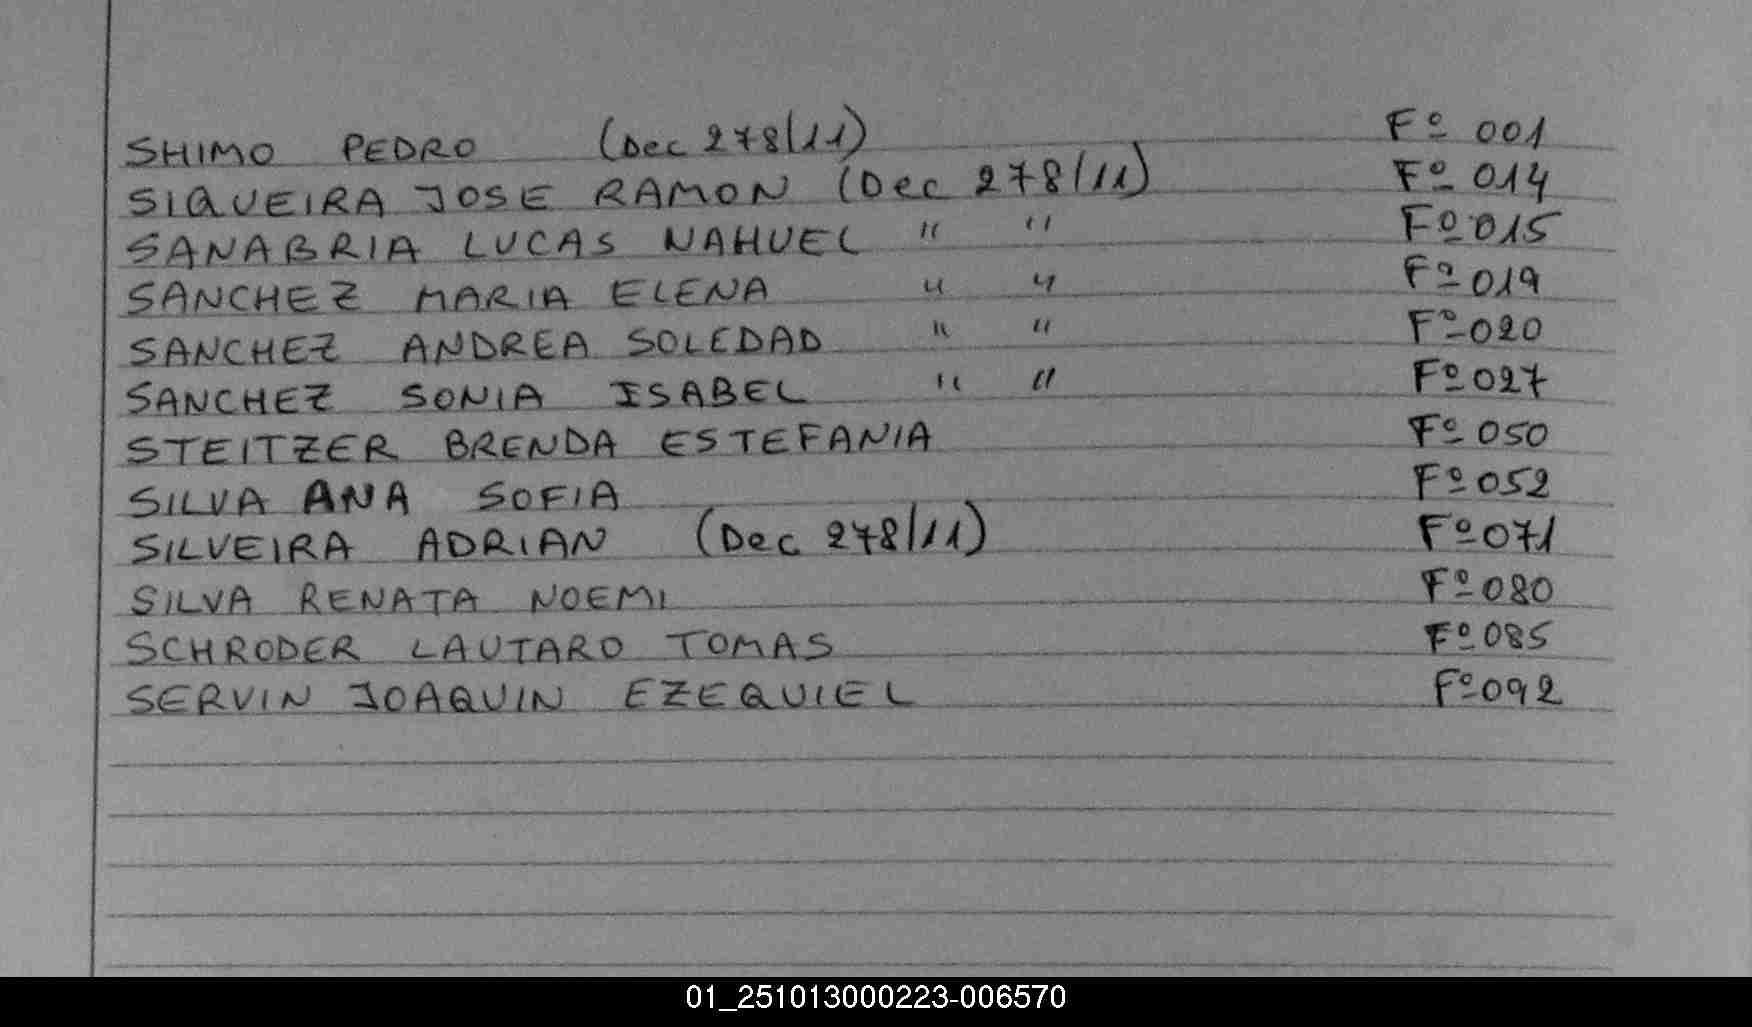 SHIMO PEDRO (Dec 278/11) Fº 001
SIQUEIRA JOSE RAMON (Dec 278/11) Fº 014
SANABRIA LUCAS NAHUEL " " Fº 015
SANCHEZ MARIA ELENA " " Fº 019
SANCHEZ ANDREA SOLEDAD " " Fº 020
SANCHEZ SONIA ISABEL " " Fº 027
STEITZER BRENDA ESTEFANIA Fº 050
SILVA ANA SOFIA Fº 052
SILVEIRA ADRIAN (Dec 278/11) Fº 071
SILVA RENATA NOEMI Fº 080
SCHRODER LAUTARO TOMAS Fº 085
SERVIN JOAQUIN EZEQUIEL Fº 092
01_251013000223-006570